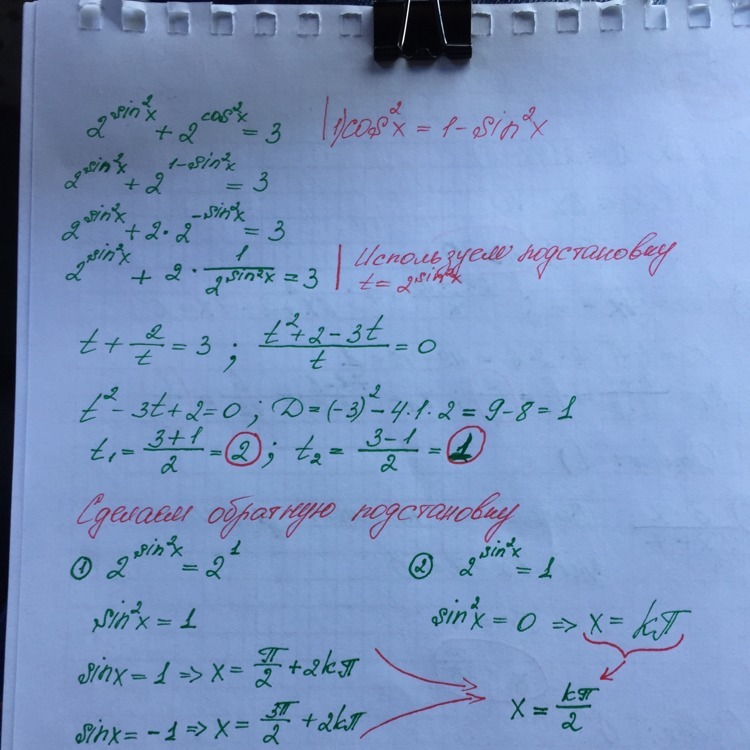 2^{sin²x} + 2^{cos²x} = 3 | 1) cos²x = 1 - sin²x
2^{sin²x} + 2^{1-sin²x} = 3
2^{sin²x} + 2 · 2^{-sin²x} = 3
2^{sin²x} + 2 · 1/2^{sin²x} = 3 | Используем подстановку
t = 2^{sin²x}
t + 2/t = 3 ; (t² + 2 - 3t)/t = 0
t² - 3t + 2 = 0 ; D = (-3)² - 4·1·2 = 9 - 8 = 1
t₁ = (3+1)/2 = 2 ; t₂ = (3-1)/2 = 1
Сделаем обратную подстановку
① 2^{sin²x} = 2¹
sin²x = 1
sinx = 1 => x = π/2 + 2kπ
sinx = -1 => x = 3π/2 + 2kπ
② 2^{sin²x} = 1
sin²x = 0 => x = kπ
x = kπ/2